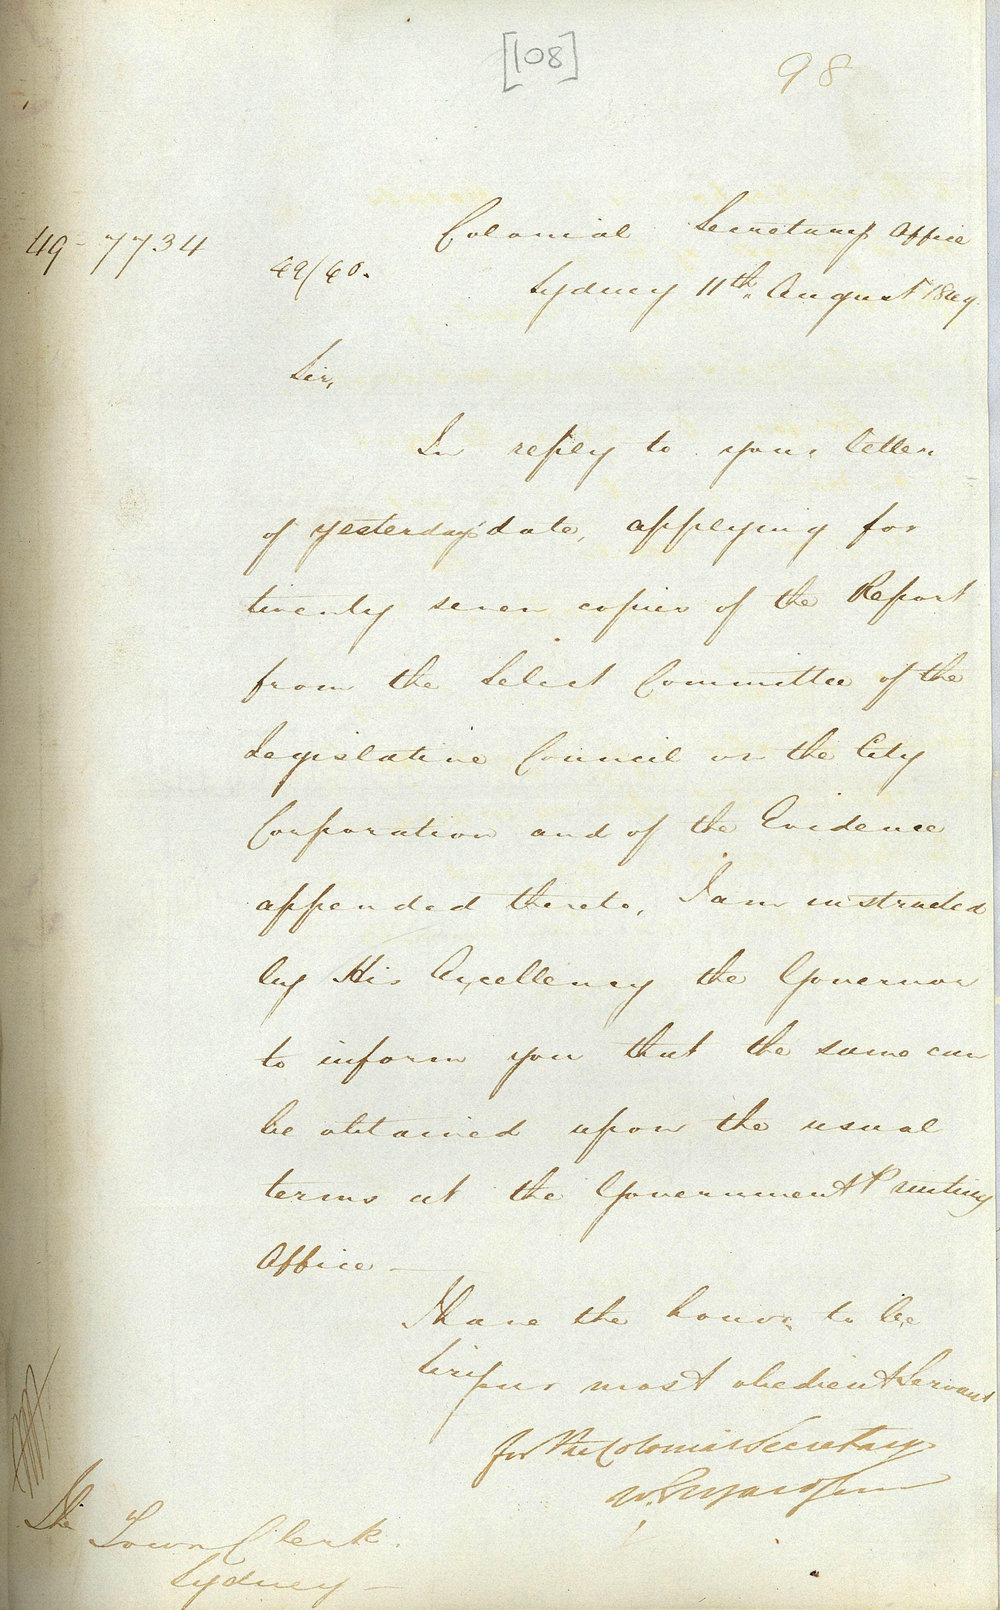 [108]
98
49-7734
49/60.
Colonial Secretary's Office
Sydney 11th August 1849.
Sir,
In reply to your letter
of yesterday's date, applying for
twenty seven copies of the Report
from the Select Committee of the
Legislative Council on the City
Corporation and of the Evidence
appended thereto, I am instructed
by His Excellency the Governor
to inform you that the same can
be obtained upon the usual
terms at the Government Printing
Office —
I have the honor to be
Sir your most obedient Servant
for the Colonial Secretary
W. Elyard Junr
The
Town Clerk.
Sydney —